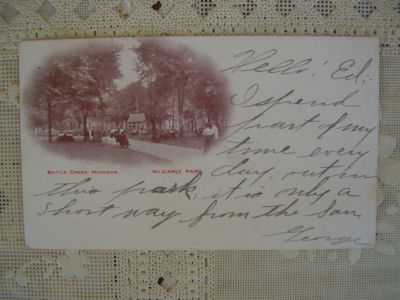 Hello! Ed:-
I spend
part of my
time every
BATTLE CREEK, MICHIGAN. McCAMLY PARK.
day, out in
this park, it is only a
short way from the San.
George